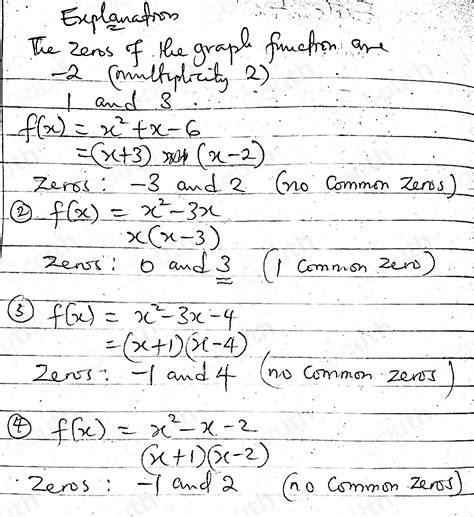 Explanation
The zeros of the graph function are
-2 (multiplicity 2)
1 and 3.
f(x) = x² + x - 6
= (x+3) (x-2)
Zeros: -3 and 2 (no common zeros)
② f(x) = x² - 3x
x(x-3)
Zeros: 0 and 3 (1 common zero)
③ f(x) = x² - 3x - 4
= (x+1)(x-4)
Zeros: -1 and 4 (no common zeros)
④ f(x) = x² - x - 2
(x+1)(x-2)
Zeros: -1 and 2 (no common zeros)